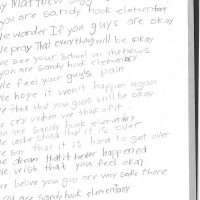 you are sandy hook elementary
we wonder If you guys are okay
we pray That everything will be okay
we see your school on thenews
you are sandy hook elementary
we feel your guy's pain
we hope it won't happen again
we think that you guys will be okay
we cry when we think of it
you are sandy hook elementary
we understand that it is over
we say that it is hard to get over
we dream that it never happened
we wish that you feel okay
we belive you guy are very safe there
you are sandy hook elementary